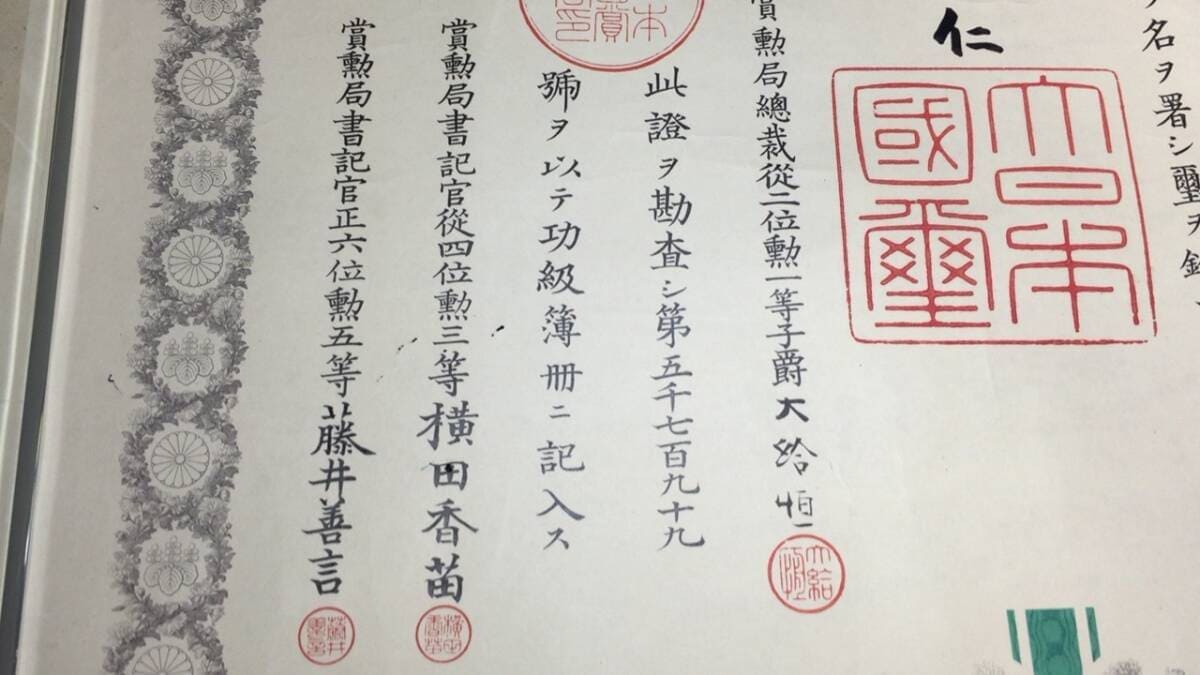 名ヲ署シ璽ヲ
仁
大日本國璽
賞勲局總裁從二位勲一等子爵大給恒
大給
此證ヲ勘査シ第五千七百九十九
號ヲ以テ功級簿册ニ記入ス
賞勲局書記官從四位勲三等橫田香苗
橫田香苗
賞勲局書記官正六位勲五等藤井善言
藤井善言